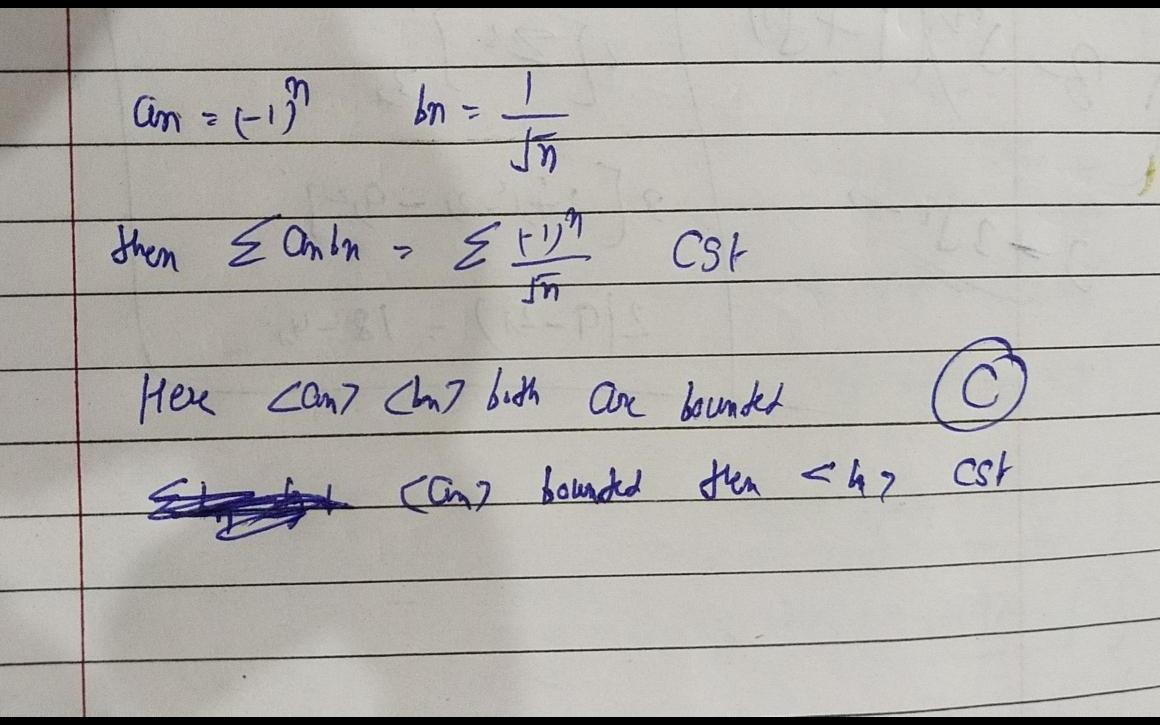 an = (-1)^n bn = 1/√n
then Σ anbn = Σ (-1)^n/√n CSt
Here <an> <bn> both are bounded C
<an> bounded then <bn> CSt